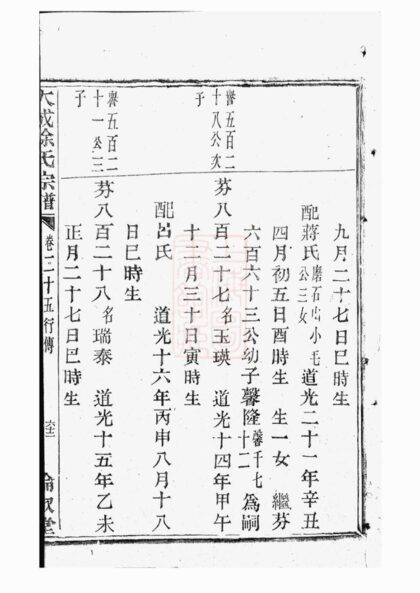 九月二十七日巳時生
配蔣氏 磨石山小毛公三女 道光二十一年辛丑
四月初五日酉時生 生一女 繼芬
六百六十三公幼子馨隆 馨千七十二 為嗣
譽五百二十八公次子
芬八百二十七 名玉瑛 道光十四年甲午
十二月三十日寅時生
配呂氏 道光十六年丙申八月十八
日巳時生
譽五百二十一公三子
芬八百二十八 名瑞泰 道光十五年乙未
正月二十七日巳時生
大成徐氏宗譜 卷二十五行傳
倫敘堂